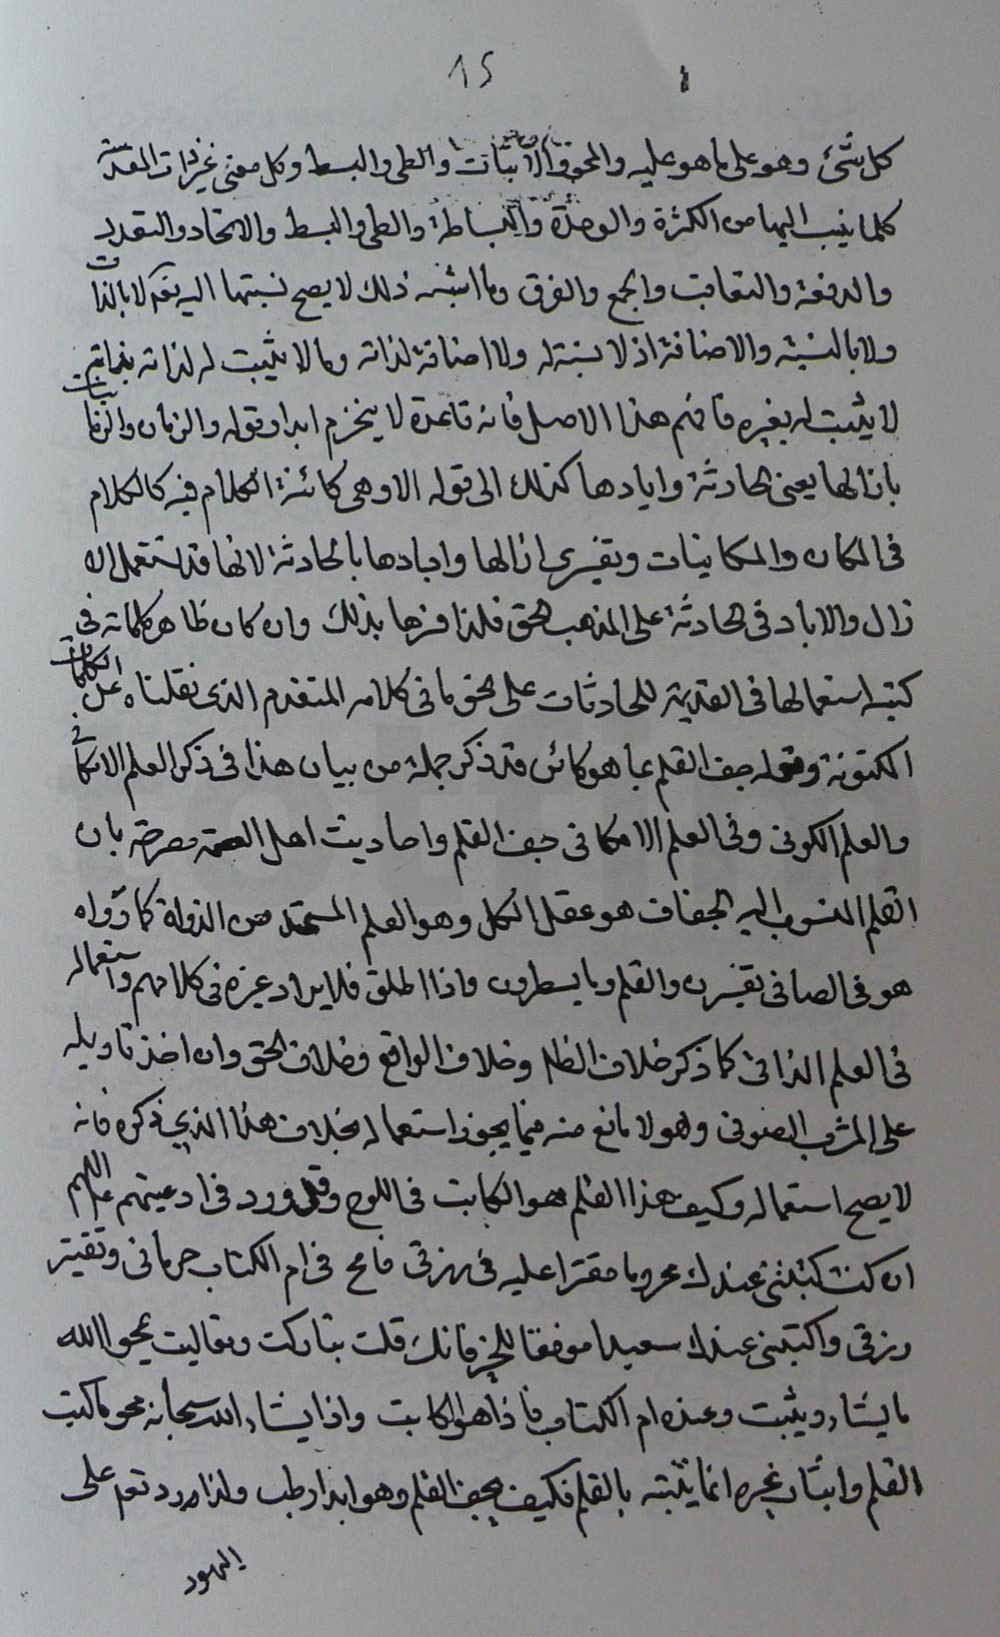 15
كل شئ وهو على ما هو عليه والمحو والاثبات والطى والبسط وكل معنى غير ذات المقدسة
كلما ينسب اليها من الكثرة والوحدة والبساطة والطى والبسط والاتحاد والتعدد
والدفعة والتعاقب والجمع والفرق وما اشبه ذلك لا يصح نسبتها اليه تعالى لا بالذات
ولا بالنسبة والاضافة اذ لا نسبة له ولا اضافة لذاته وما لا يثبت له لذاته بذاته
لا يثبت له بغيره فافهم هذا الاصل فانه قاعدة لا ينخرم ابدا وقوله والزمان والزمانيات
بازالها يعنى الحادثة وابادها كذلك الى قوله الاوهى كائنة الكلام فيه كالكلام
فى المكان والمكانيات وتفسيرى ازالها وابادها بالحادثة لانها قد استعمل الا
زال والاباد فى الحادثة على المذهب الحق فلذا فسرها بذلك وان كان ظاهر كلماته فى
كتبه استعمالها فى القديمة للحادثات على نحو ما فى كلامه المتقدم الذى نقلناه عن الكلمات
المكنونة وقوله جف القلم بما هو كائن قد ذكر جملة من بيان هذا فى ذكر العلم الامكانى
والعلم الكونى وفى العلم الامكانى جف القلم واحاديث اهل العصمة مصرحة بان
القلم المنسوب اليه الجفاف هو عقل الكل وهو القلم المستمد من الدواة كما رواه
هو فى الصافى تفسير ن والقلم وما يسطرون واذا اطلق فلا يراد غيره فى كلامهم واستعماله
فى العلم الذاتى كما ذكر خلاف الظاهر وخلاف الواقع وخلاف الحق وان اخذ تاويله
على المشرب الصوفى وهو لا مانع منه فيما يجوز استعماله بخلاف هذا الذى ذكره فانه
لا يصح استعماله وكيف هذا القلم هو الكاتب فى اللوح وقد ورد فى ادعيتهم عم اللهم
ان كنت كتبتنى عندك محروما مقترا عليه فى رزقى فامح فى ام الكتاب حرمانى وتقتير
رزقى واكتبنى عندك سعيدا موفقا للخير فانك قلت تباركت وتعاليت يمحو الله
ما يشاء ويثبت وعنده ام الكتاب فاذا هو الكاتب واذا يشاء الله سبحانه محو ما كتب
القلم واثبات غيره انما يثبته بالقلم فكيف يجف القلم وهو ابدا رطب ولذا رد تعالى على
اليهود